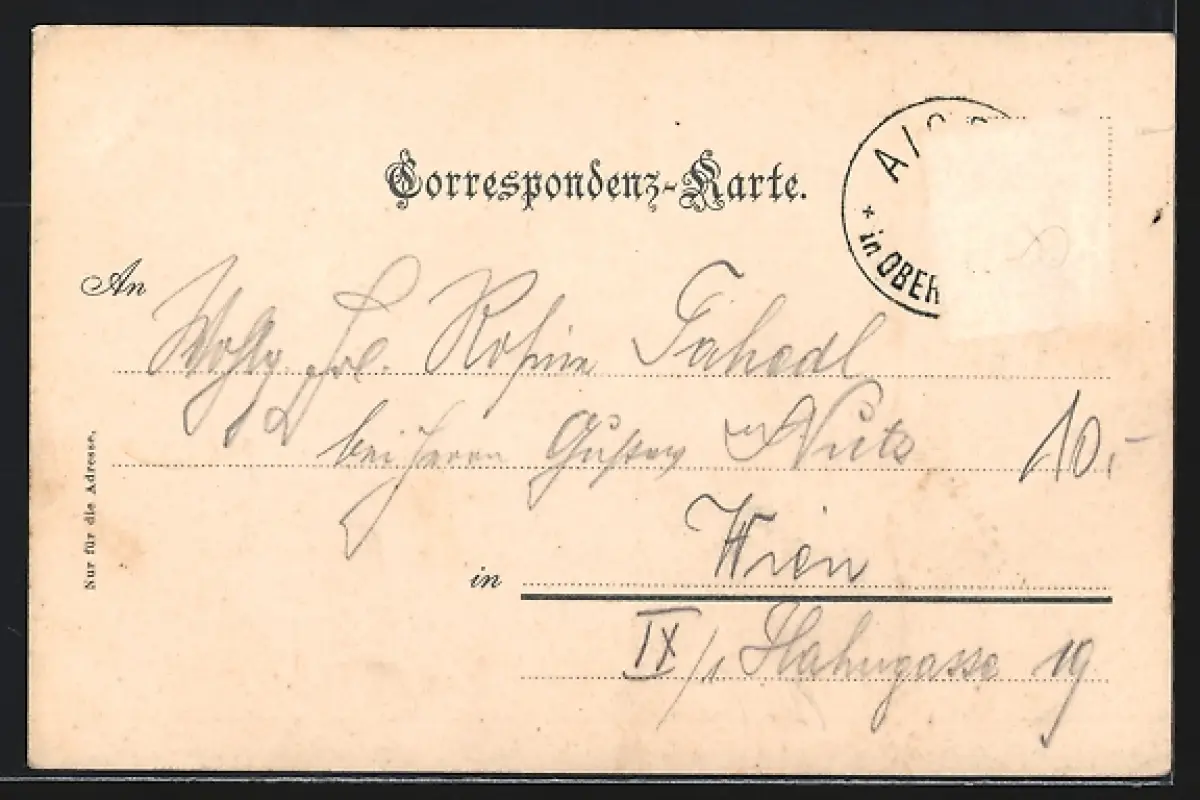 Correspondenz-Karte.
in OBER
An Wohlg. Frl. Rosine
bei Herrn Gustav
10.-
in Wien
IX/1 Hahngasse 19
Nur für die Adresse.